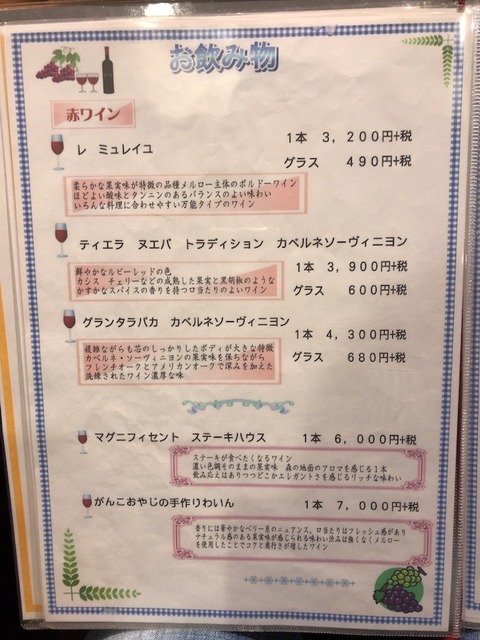 お飲み物
赤ワイン
レ ミュレイユ 1本 3,200円+税
グラス 490円+税
柔らかな果実味が特徴の品種メルロー主体のボルドーワイン
ほどよい酸味とタンニンのあるバランスのよい味わい
いろんな料理に合わせやすい万能タイプのワイン
ティエラ ヌエバ トラディション カベルネソーヴィニヨン
1本 3,900円+税
グラス 600円+税
鮮やかなルビーレッドの色
カシス チェリーなどの成熟した果実と黒胡椒のような
かすかなスパイスの香りを持つ口当たりのよいワイン
グランタラパカ カベルネソーヴィニヨン
1本 4,300円+税
グラス 680円+税
複雑ながらも芯のしっかりしたボディが大きな特徴
カベルネ・ソーヴィニヨンの果実味を保ちながら
フレンチオークとアメリカンオークで深みを加えた
洗練されたワイン濃厚な味
マグニフィセント ステーキハウス 1本 6,000円+税
ステーキが食べたくなるワイン
濃い色調そのままの果実味 森の地面のアロマを感じる1本
飲み応えはありつつどこかエレガントさを感じるリッチな味わい
がんこおやじの手作りわいん 1本 7,000円+税
香りには華やかなベリー系のニュアンス、口当たりはフレッシュ感があり
ナチュラル感のある果実味が感じられる味わい渋みは強くなくメルロー
を使用したことでコクと奥行きが増したワイン